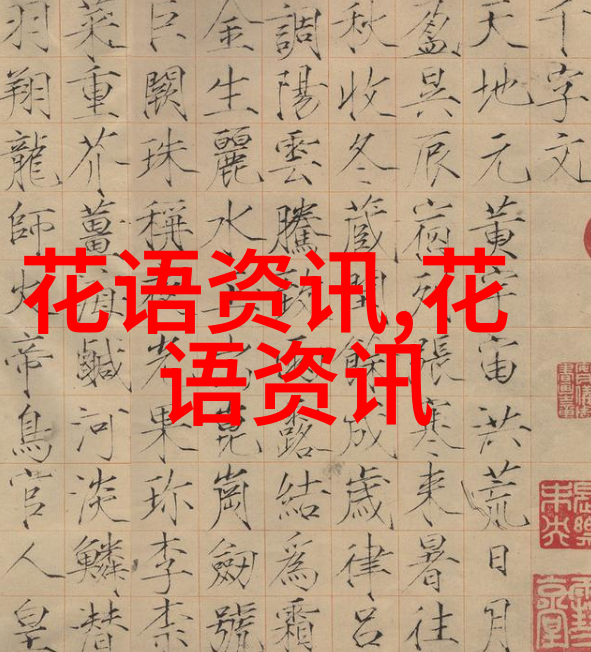 花语资讯,花
语资讯
千字文
天地元黃宇宙洪荒日月
盈昃辰宿列張寒来暑往
秋收冬蔵閏餘成歲律吕
調陽雲騰致雨露結爲霜
金生麗水玉出崑崗劒號
巨闕珠稱夜光果珍李柰
菜重芥薑海鹹河淡鱗潛
羽翔龍師火帝鳥官人皇